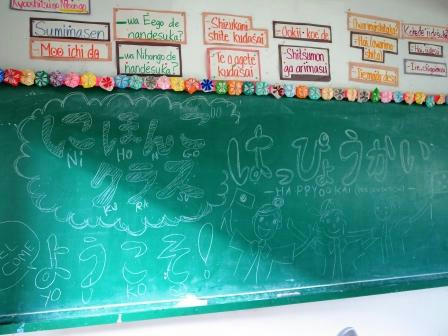 Sumimasen
Moo ichi do
—wa Eego de
nandesuka?
—wa Nihongo de
nandesuka?
Shizukani
shite kudasai
Te o agete
kudasai
Ookii koe de
Shitsumon
ga arimasu
にほんご
NI HO N GO
クラス
KU RA SU
はっぴょうかい
HAPPYOOKAI
WELCOME
ようこそ!
YO U KO SO